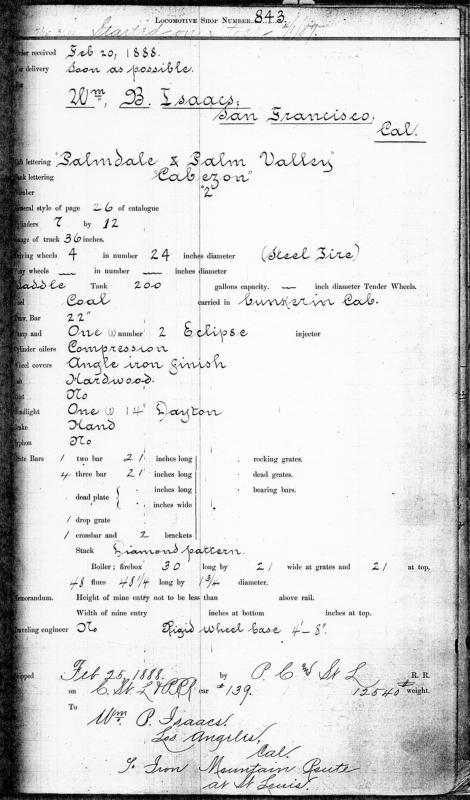 Locomotive Shop Number 843.
Started
received Feb 20, 1888.
delivery Soon as possible.
Wm, B. Isaacs,
San Francisco,
Cal.
lettering "Palmdale & Palm Valley"
lettering "Cabezon"
"2"
style of page 26 of catalogue
7 by 12
of track 36 inches.
wheels 4 in number 24 inches diameter (Steel Tire)
wheels — in number — inches diameter
Saddle Tank 200 gallons capacity. — inch diameter Tender Wheels.
Coal carried in bunker in Cab.
Bar 22"
and One (1) number 2 Eclipse injector
oilers Compression
covers Angle iron finish
Hardwood.
No
One (1) 14" Dayton
Hand
No
Bars 1 two bar 21 inches long rocking grates.
4 three bar 21 inches long dead grates.
dead plate { inches long bearing bars.
inches wide
1 drop grate
1 crossbar and 2 brackets
Stack Diamond pattern.
Boiler; firebox 30 long by 21 wide at grates and 21 at top,
48 flues 48 1/4 long by 1 3/4 diameter.
Memorandum. Height of mine entry not to be less than above rail.
Width of mine entry inches at bottom inches at top.
Traveling engineer No Rigid wheel base 4'-8".
Feb 25, 1888. by P. C. & St L R. R.
on C. St. L & P.R.R car #139. 12540# weight.
To
Wm. P. Isaacs.
Los Angeles,
Cal.
Iron Mountain Route
at St Louis.